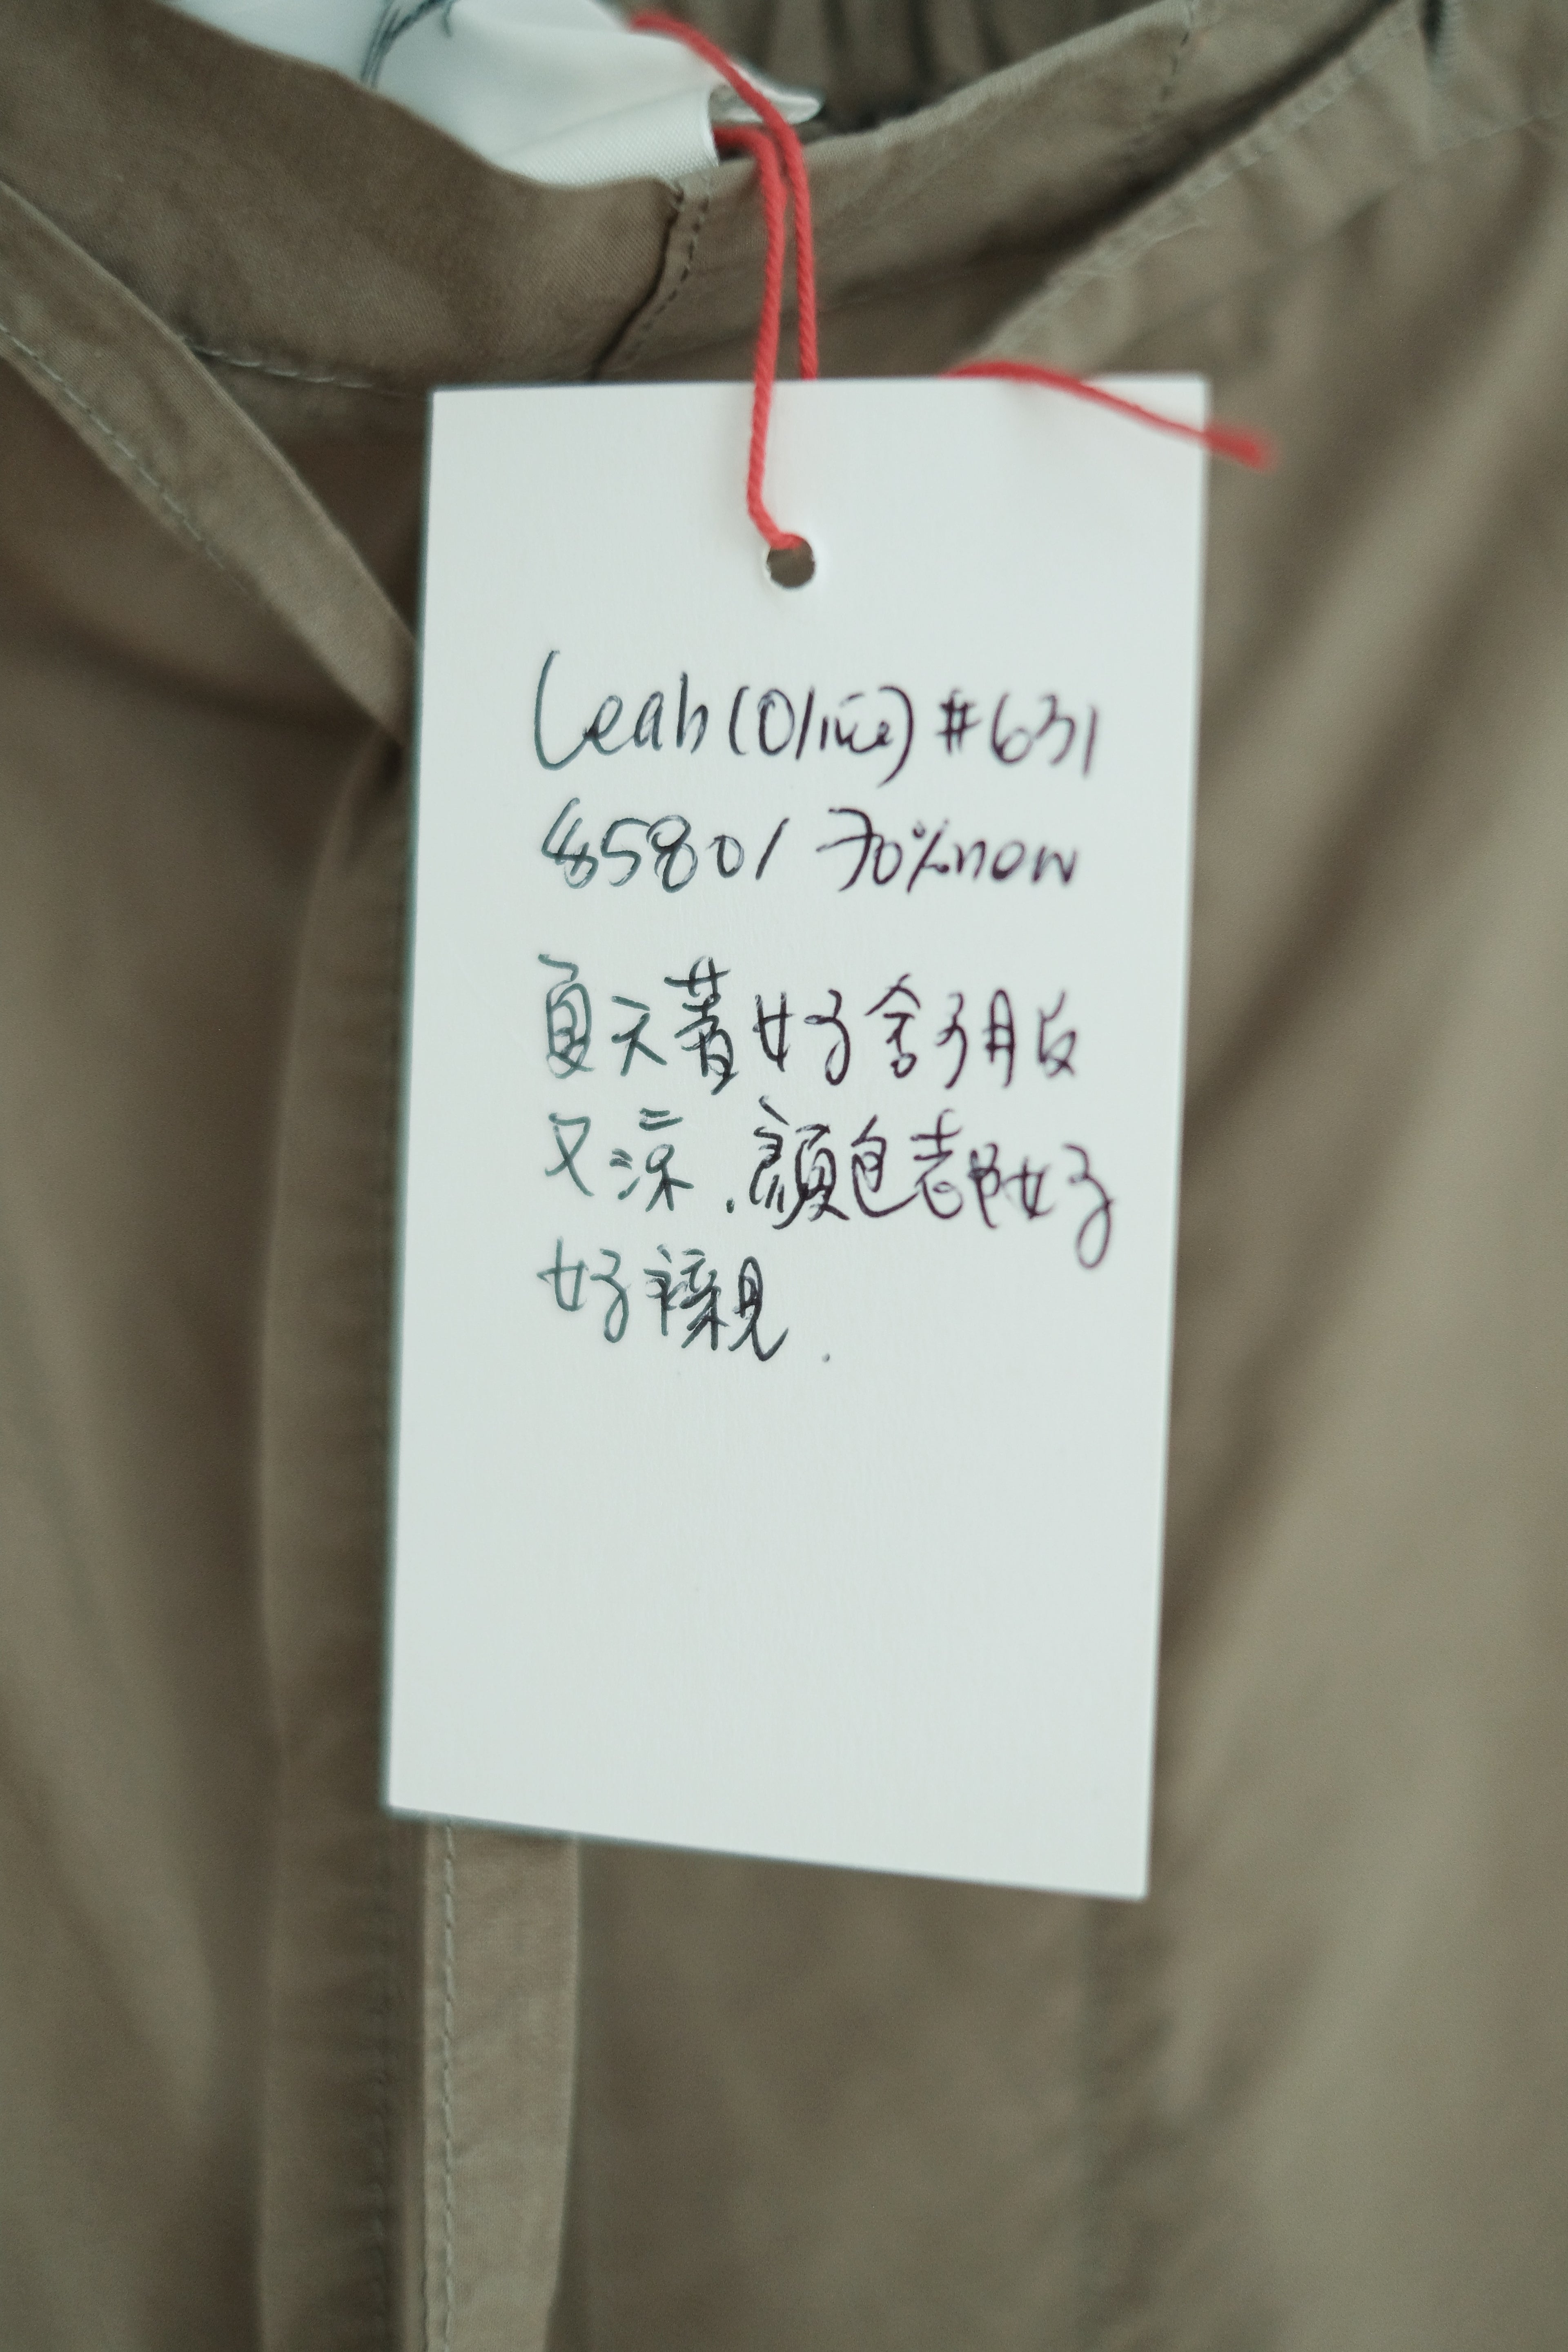 Leah (Olive) #631
$580/ 70% new
夏天著好舒服
又涼.顏色都好
好襯.